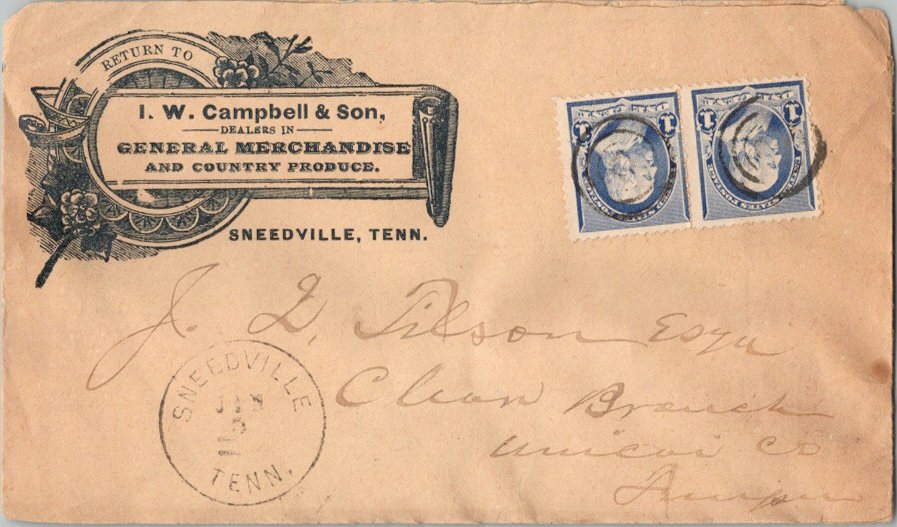 RETURN TO
I. W. Campbell & Son,
DEALERS IN
GENERAL MERCHANDISE
AND COUNTRY PRODUCE.
SNEEDVILLE, TENN.
1 1
1 1
J. Q. Tilson Esqu
Clear Branch
Unicoi Co
SNEEDVILLE
JAN
TENN.